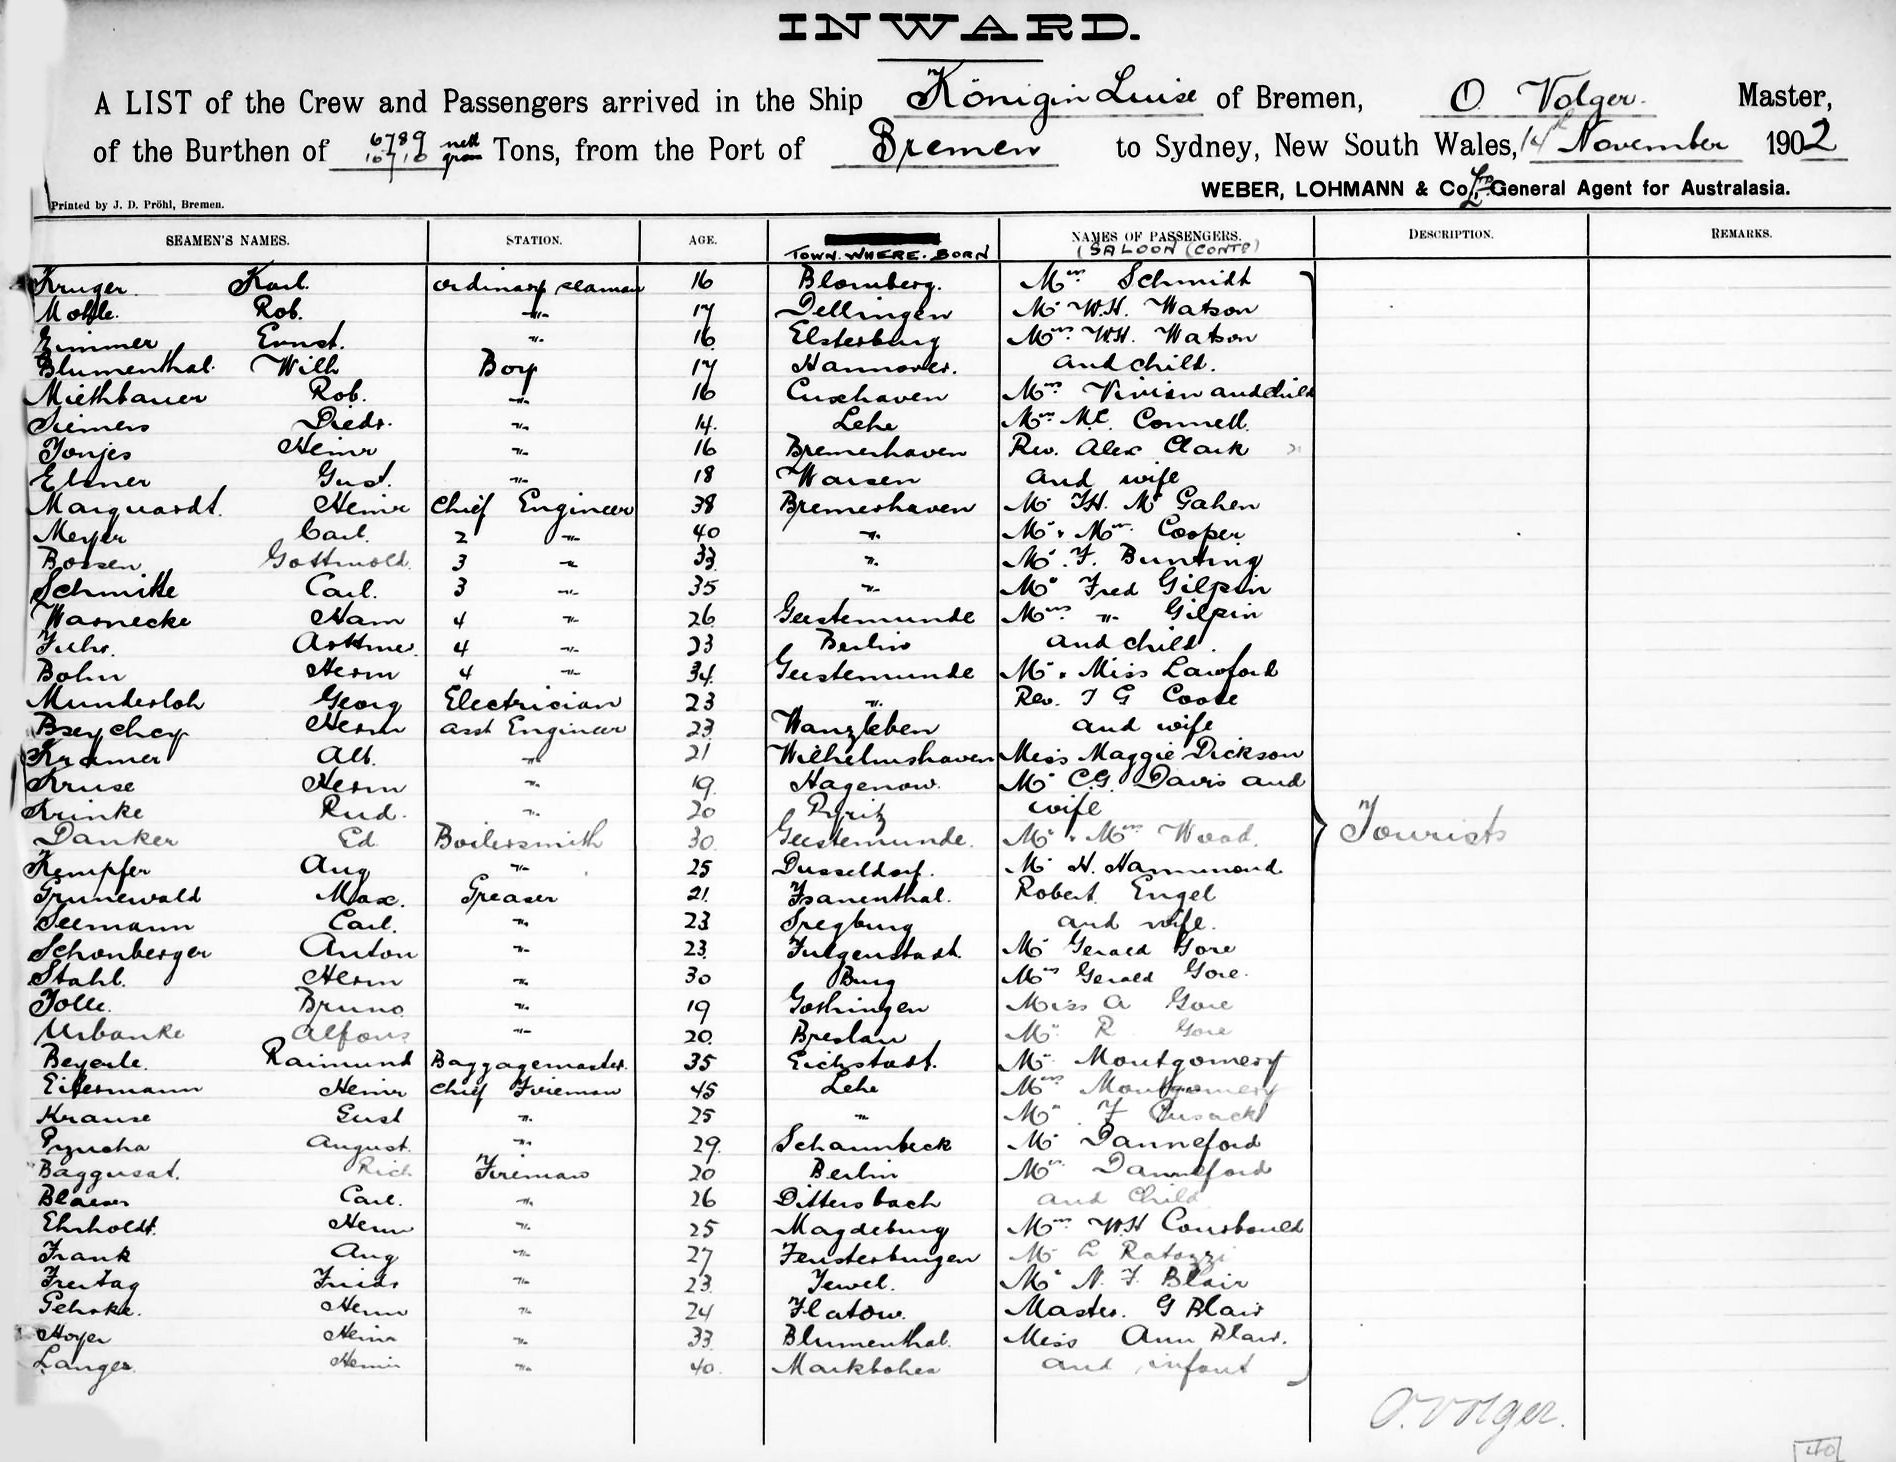 INWARD.
A LIST of the Crew and Passengers arrived in the Ship Königin Luise of Bremen, O Volger. Master,
of the Burthen of 6789 nett 10710 gross Tons, from the Port of Bremen to Sydney, New South Wales, 14th November 1902
WEBER, LOHMANN & Co Ltd General Agent for Australasia.
Printed by J. D. Pröhl, Bremen.
SEAMEN'S NAMES. STATION. AGE. TOWN. WHERE. BORN NAMES OF PASSENGERS. DESCRIPTION. REMARKS.
(SALOON (CONTD)
Kruger Karl. ordinary seaman 16 Blomberg. Mrs Schmidt
Mohle. Rob. -"- 17 Dellingen Mr W.H. Watson
Zimmer Ernst. -"- 16 Elsterburg Mrs W.H. Watson
Blumenthal. Wilh Boy 17 Hannover. and child.
Miethbauer Rob. -"- 16 Cuxhaven Mrs Vivian and child
Siemers Diedr. -"- 14. Lehe Mrs Mc Connell.
Tonjes Heinr -"- 16 Bremerhaven Rev. Alex Clark
Elsner Gust. -"- 18 Warsen and wife
Marquardt. Heinr Chief Engineer 38 Bremerhaven Mr T.H. Mc Gahen
Meyer Carl. 2 -"- 40 -"- Mr & Mrs Cooper.
Bossen 3 -"- 33 -"- Mr F. Bunting
Schmitte Carl. 3 -"- 35 -"- Mr Fred Gilpin
Warnecke Ham 4 -"- 26 Geestemunde Mrs -"- Gilpin
Fuhr. 4 -"- 23 Berlin and child.
Bohn Herm 4 -"- 34. Geestemunde Mr & Miss Lawford
Munderloh Georg Electrician 23 -"- Rev. T G Coose
Herm asst Engineer 23 Wanzleben and wife
Kramer Alb. -"- 21 Wilhelmshaven Miss Maggie Dickson
Kruse Herm -"- 19. Hagenow. Mr C.G. Davis and
Krinke Rud. -"- 20 Pyritz wife
Danker Ed. Boilersmith 30. Geestemunde. Mr & Mrs Wood. Tourists
Kempfer Aug -"- 25 Dusseldorf. Mr H. Hammond
Grunewald Max. Greaser 21. Isanenthal. Robert Engel
Seemann Carl. -"- 23 Spegburg and wife.
Schonberger Anton -"- 23. Mr Gerald Gore
Stahl. Herm -"- 30 Burg Mrs Gerald Gore.
Tolle. Bruno -"- 19 Gottingen Miss A Gore
Urbanke Alfons -"- 20. Breslau Mr R Gore
Beyerle. Raimund Baggagemaster. 35 Eichstadt. Mr Montgomery
Eilermann Heinr Chief Fireman 45 Lehe Mrs Montgomery
Krause Gust -"- 25 -"- Mr F Cusack
Pyucha August. -"- 29. Schaumbeck Mr Danneford
Baggusat. Rich Fireman 20 Berlin Mrs Danneford
Carl. -"- 26 Dittersbach and Child
Ehrholdt. Herm -"- 25 Magdeburg Mrs W.H Courbould
Frank Aug -"- 27 Fensterbungen Mr L Ratazzi
Freitag Friedr -"- 23. Jewel. Mr N. F. Blair
Gehrke. Herm -"- 24 Flatow. Master. G Blair
Hoyer Heinr -"- 33 Blumenthal. Miss Ann Blair.
Langer Heinr -"- 40. and infant
O. Volger.
40